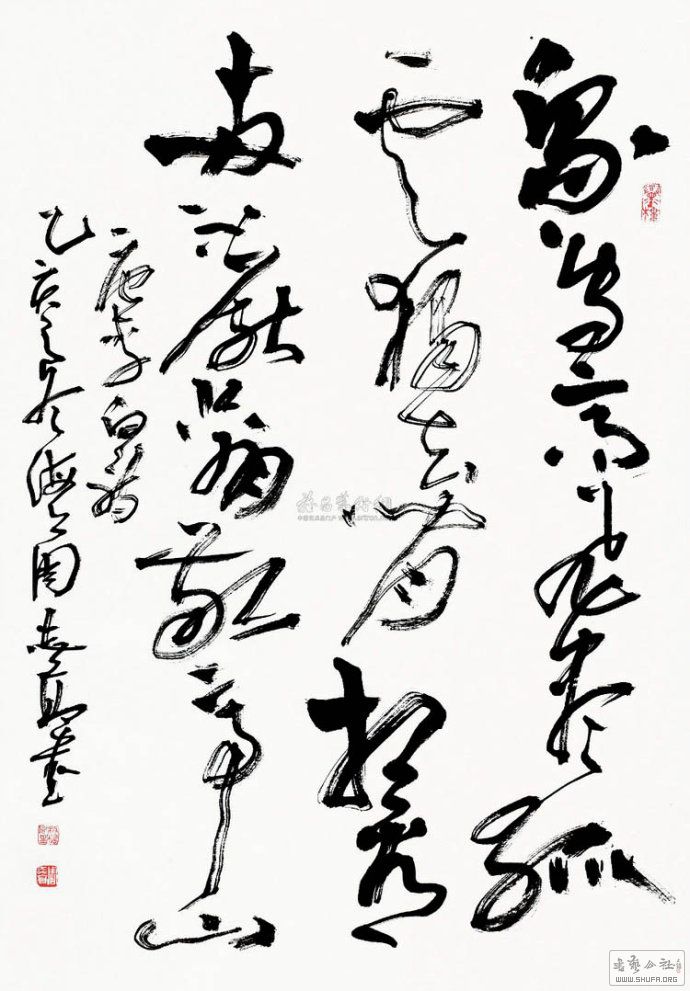 眾鳥高飛盡孤
云獨去閒相看
兩不厭只有敬亭山
唐李白詩
乙亥之冬海上周志高書
書藝公社
WWW.SHUFA.ORG